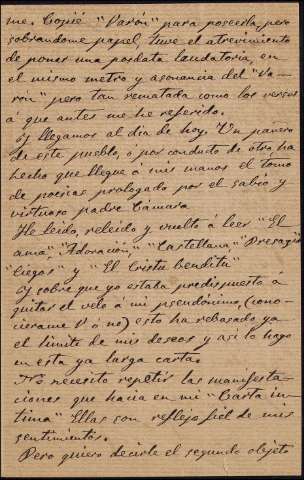 me. Copié "Varón" para poseerla, pero
sobrandome papel, tuve el atrevimiento
de poner una posdata laudatoria, en
el mismo metro y asonancia del "Va-
rón" pero tan rematada como los versos
á que antes me he referido.
Y llegamos al dia de hoy. Un
de este pueblo, ó por conducto de otro ha
hecho que llegue á mis manos el tomo
de poesias prologado por el sabio y
virtuoso padre Cámara
He leido, releido y vuelto á leer "El
ama", "Adoración," "Castellana," "Presagio"
"Ciegos" y "El Cristu benditu"
Y sobre que yo estaba predispuesto á
quitar el velo á mi pseudónimo, (cono-
cierame V. ó no) esto ha rebasado ya
el límite de mis deseos y asi lo hago
en esta ya larga carta.
No necesito repetir las manifesta-
ciones que hacia en mi "Carta in-
tima" Ellas son reflejo fiel de mis
sentimientos.
Pero quiero decirle el segundo objeto